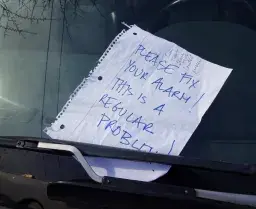 PLEASE FIX
YOUR ALARM!
THIS IS A
REGULAR
PROBLEM!